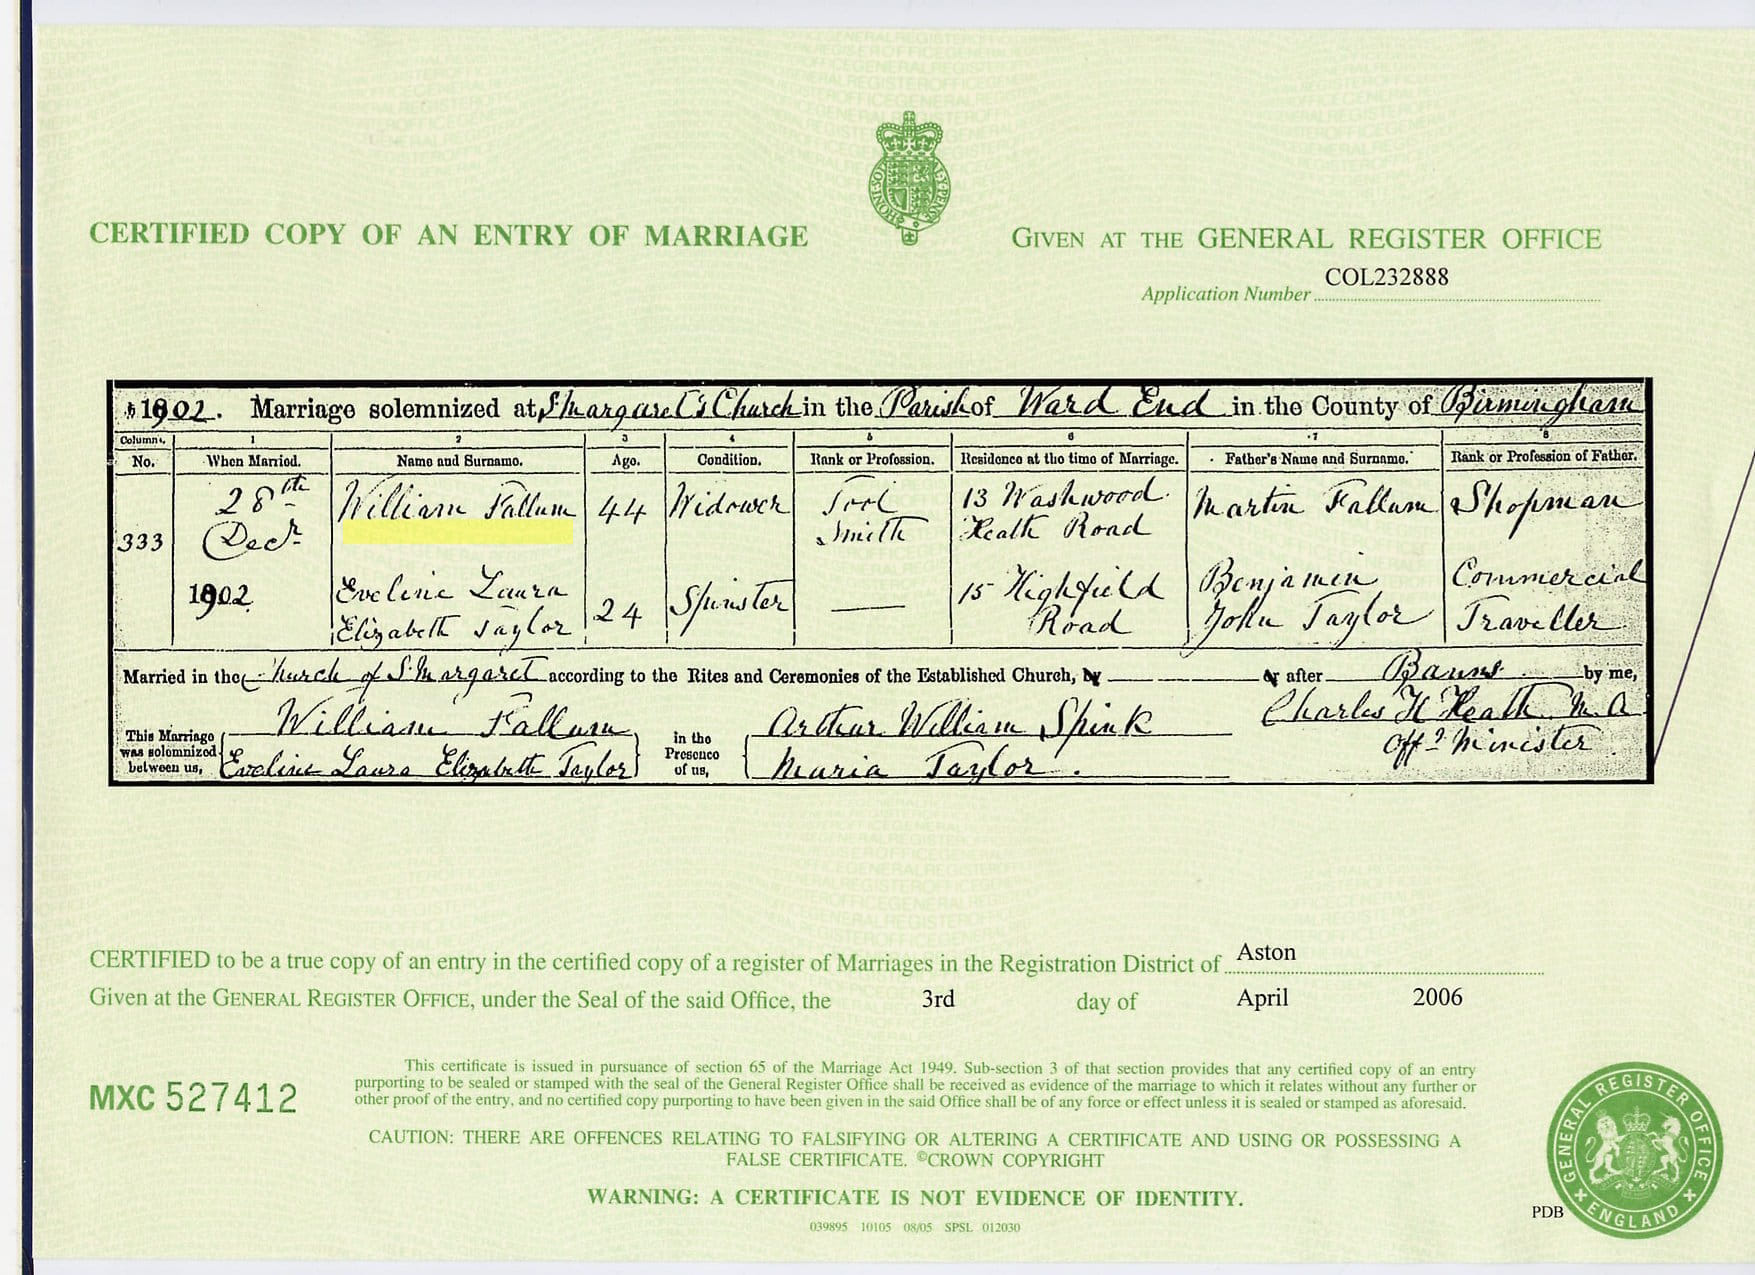 CERTIFIED COPY OF AN ENTRY OF MARRIAGE
GIVEN AT THE GENERAL REGISTER OFFICE
COL232888
Application Number
1902. Marriage solemnized at St Margaret's Church in the Parish of Ward End in the County of Birmingham
Columns. 1 2 3 4 5 6 7 8
No. When Married. Name and Surname. Age. Condition. Rank or Profession. Residence at the time of Marriage. Father's Name and Surname. Rank or Profession of Father.
28th William Fallum 44 Widower Tool 13 Washwood Martin Fallum Shopman
333 Decr Smith Heath Road
1902 Eveline Laura 24 Spinster — 15 Highfield Benjamin Commercial
Elizabeth Taylor Road John Taylor Traveller
Married in the Church of St Margaret according to the Rites and Ceremonies of the Established Church, by or after Banns by me,
This Marriage was solemnized between us, William Fallum in the Presence of us, Arthur William Spink Charles H Heath M.A
Eveline Laura Elizabeth Taylor Maria Taylor. Offg Minister
CERTIFIED to be a true copy of an entry in the certified copy of a register of Marriages in the Registration District of Aston
Given at the GENERAL REGISTER OFFICE, under the Seal of the said Office, the 3rd day of April 2006
MXC 527412
This certificate is issued in pursuance of section 65 of the Marriage Act 1949. Sub-section 3 of that section provides that any certified copy of an entry
purporting to be sealed or stamped with the seal of the General Register Office shall be received as evidence of the marriage to which it relates without any further or
other proof of the entry, and no certified copy purporting to have been given in the said Office shall be of any force or effect unless it is sealed or stamped as aforesaid.
CAUTION: THERE ARE OFFENCES RELATING TO FALSIFYING OR ALTERING A CERTIFICATE AND USING OR POSSESSING A
FALSE CERTIFICATE. ©CROWN COPYRIGHT
WARNING: A CERTIFICATE IS NOT EVIDENCE OF IDENTITY.
039895 10105 08/05 SPSL 012030
PDB
GENERAL REGISTER OFFICE
ENGLAND